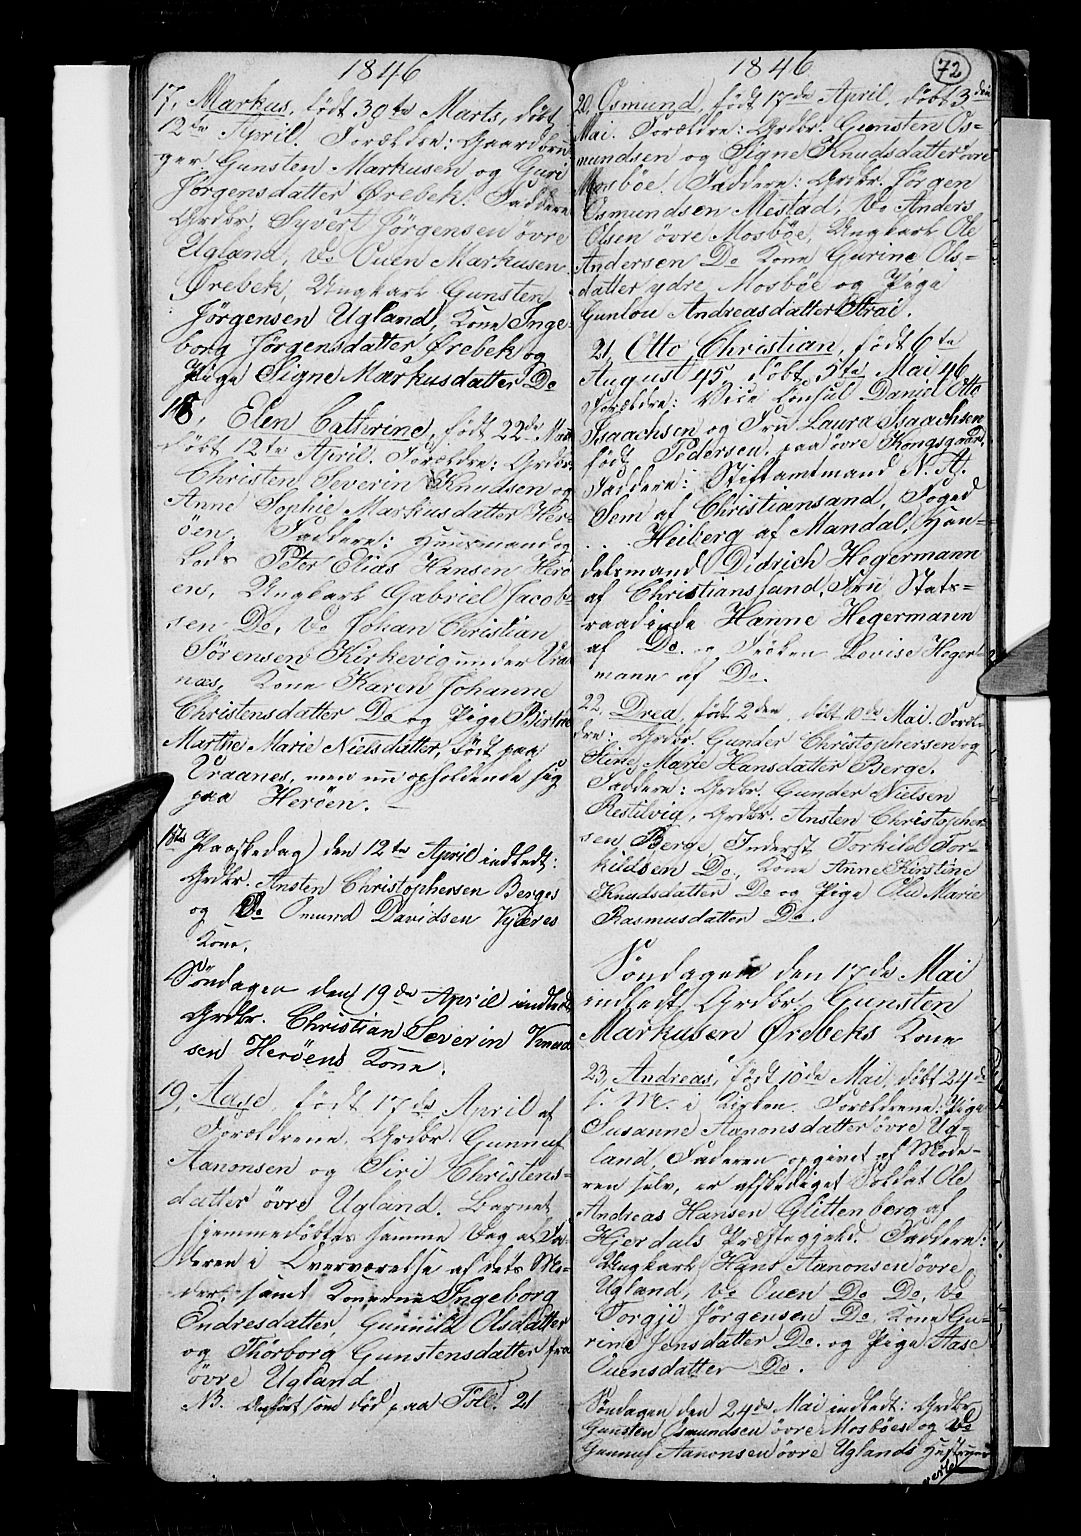 1846
17, Markus, født 30te Marts, døbt
12te April. Forældre: Gaardbru-
ger Gunsten Markusen og Guri
Jørgensdatter Ørebek. Faddere
Grdbr. Syvert Jørgensen øvre
Ugland, Do Ouen Markusen
Ørebek, Ungkarl Gunsten
Jørgensen Ugland, Kone Inge-
borg Jørgensdatter Ørebek og
Pige Signe Markusdatter Do
18, Elen Cathrine, født 22de Marts
døbt 12te April. Forældre: Grdbr.
Christen Severin Knudsen og
Anne Sophie Markusdatter Her-
öen, Faddere: Huusmand og
Lods Peter Elias Hansen Herö-
en, Ungkarl Gabriel Jacob-
sen Do, Do Johan Christian
Sørensen Kirkevig under Vraa-
næs, Kone Karen Johanne
Christensdatter Do og Pige Birthe
Marthe Marie Nielsdatter, født paa
Vraanes, men nu opholdende sig
paa Heröen.
(Paaskedag) den 12te April indledt:
Grdbr. Ansten Christophersen Berges
og Do Omund Davidsen Kjæres
Kone.
Søndagen den 19de April indledt
Grdbr. Christian Severin Knud-
sen Heröens Kone.
19, Aase, født 17de April af
Forældrene, Grdbr. Gunnuf
Aanonsen og Siri Christens-
datter øvre Ugland. Barnet
hjemmedøbtes samme Dag af Fa-
deren i Overværelse af dets Mo-
der, samt Konerne Ingeborg
Endresdatter, Gunnild Olsdatter
og Thorborg Gunstensdatter fra
øvre Ugland
NB. Anført som død paa Fol. 21
1846
72
20, Osmund, født 17de April, døbt 3die
Mai. Forældre: Grdbr. Gunsten Os-
mundsen og Signe Knudsdatter øvre
Mosbøe. Faddere: Grdbr. Jørgen
Osmundsen Mestad, Do Anders
Olsen øvre Mosbøe, Ungkarl Ole
Andersen Do Kone Gurine Ols-
datter ydre Mosbøe og Pige
Gunlou Andreasdatter Strai.
21, Otto Christian, født 6te
August 45, døbt 5te Mai 46
Forældre: Vice Consul Daniel Otto
Isaachsen og Fru Laura Isaachsen
født Pedersen, paa øvre Kongsgaard,
Faddere: Stiftamtmand N. A.
Sem af Christiansand, Foged
Heiberg af Mandal, Han-
delsmand Didrich Hegermann
af Christianssand, Fru Stats-
raadinde Hanne Hegermann
af Do. og Frøken Lovise Heger-
mann af Do.
22, Drea, født 2den, døbt 10de Mai. Foræl-
dre: Grdbr. Gunder Christophersen og
Stine Marie Hansdatter Berge.
Faddere: Grdbr. Gunder Nielsen
Restilvig, Grdbr. Ansten Christopher-
sen Berge, Inderst Torkild Tor-
kildsen Do, Kone Anne Kirstine
Knudsdatter Do og Pige Ole Marie
Rasmusdatter Do.
Søndagen den 17de Mai
indledt Grdbr. Gunsten
Markusen Ørebeks Kone
23, Andreas, født 10de Mai, døbt 24de
s. M. i Kirken. Forældrene: Pige
Susanne Aanonsdatter øvre Ug-
land, Faderen opgivet af Mode-
ren selv, er afskediget Soldat Ole
Andreas Hansen Glittenberg af
Hjerdals Præstegjeld. Faddere:
Ungkarl Hans Aanonsen øvre
Ugland, Do Ouen Do Do, Do
Torgji Jørgensen Do, Kone Gu-
rine Jensdatter Do. og Pige Aase
Ouensdatter Do.
Søndagen den 24de Mai indledt: Grdbr.
Gunsten Osmundsen øvre Mosbøes og Do
Gunnuf Aanonsen øvre Uglands Hustruer